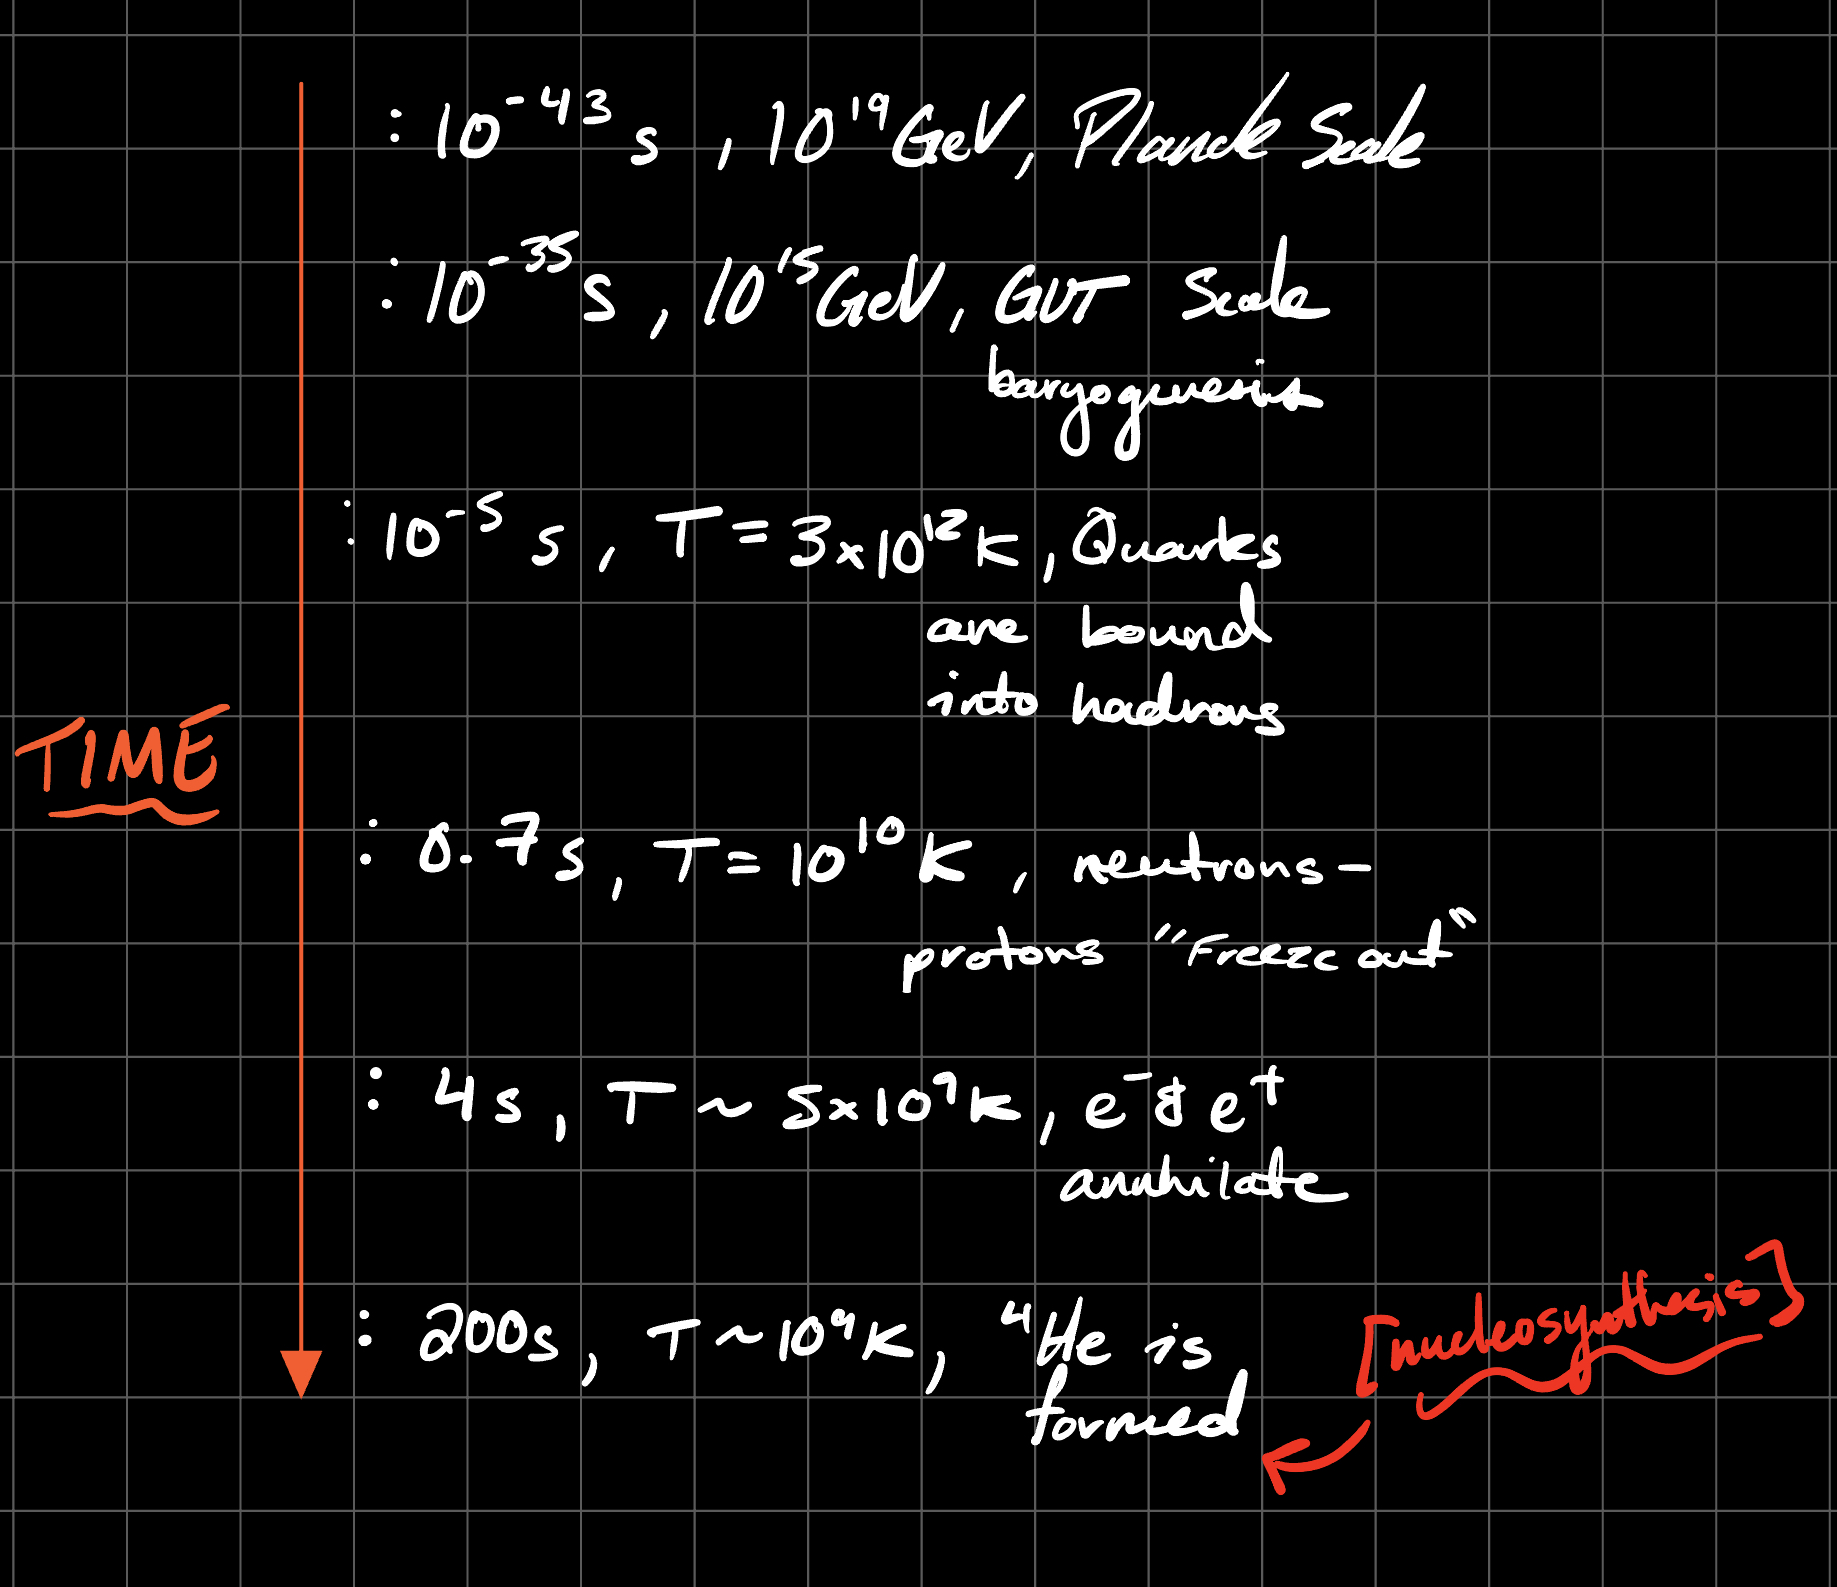 : 10⁻⁴³ s , 10¹⁹ GeV, Planck Scale
: 10⁻³⁵ s , 10¹⁵ GeV, GUT Scale
baryogenesis
: 10⁻⁵ s , T = 3 x 10¹² K , Quarks
are bound
into hadrons
TIME
: 0.7 s , T = 10¹⁰ K , neutrons -
protons "Freeze out"
: 4 s , T ~ 5 x 10⁹ K , e⁻ & e⁺
annhilate
: 200 s , T ~ 10⁹ K , ⁴He is
formed
[nucleosynthesis]